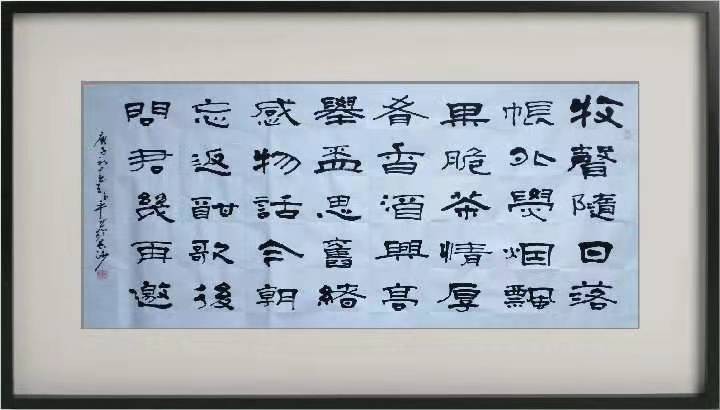 牧聲隨日落
帳外煚烟飄
果脆茶情厚
肴香酒興高
舉盃思舊緒
感物話今朝
忘返酣歌後
問君幾再邀
庚子